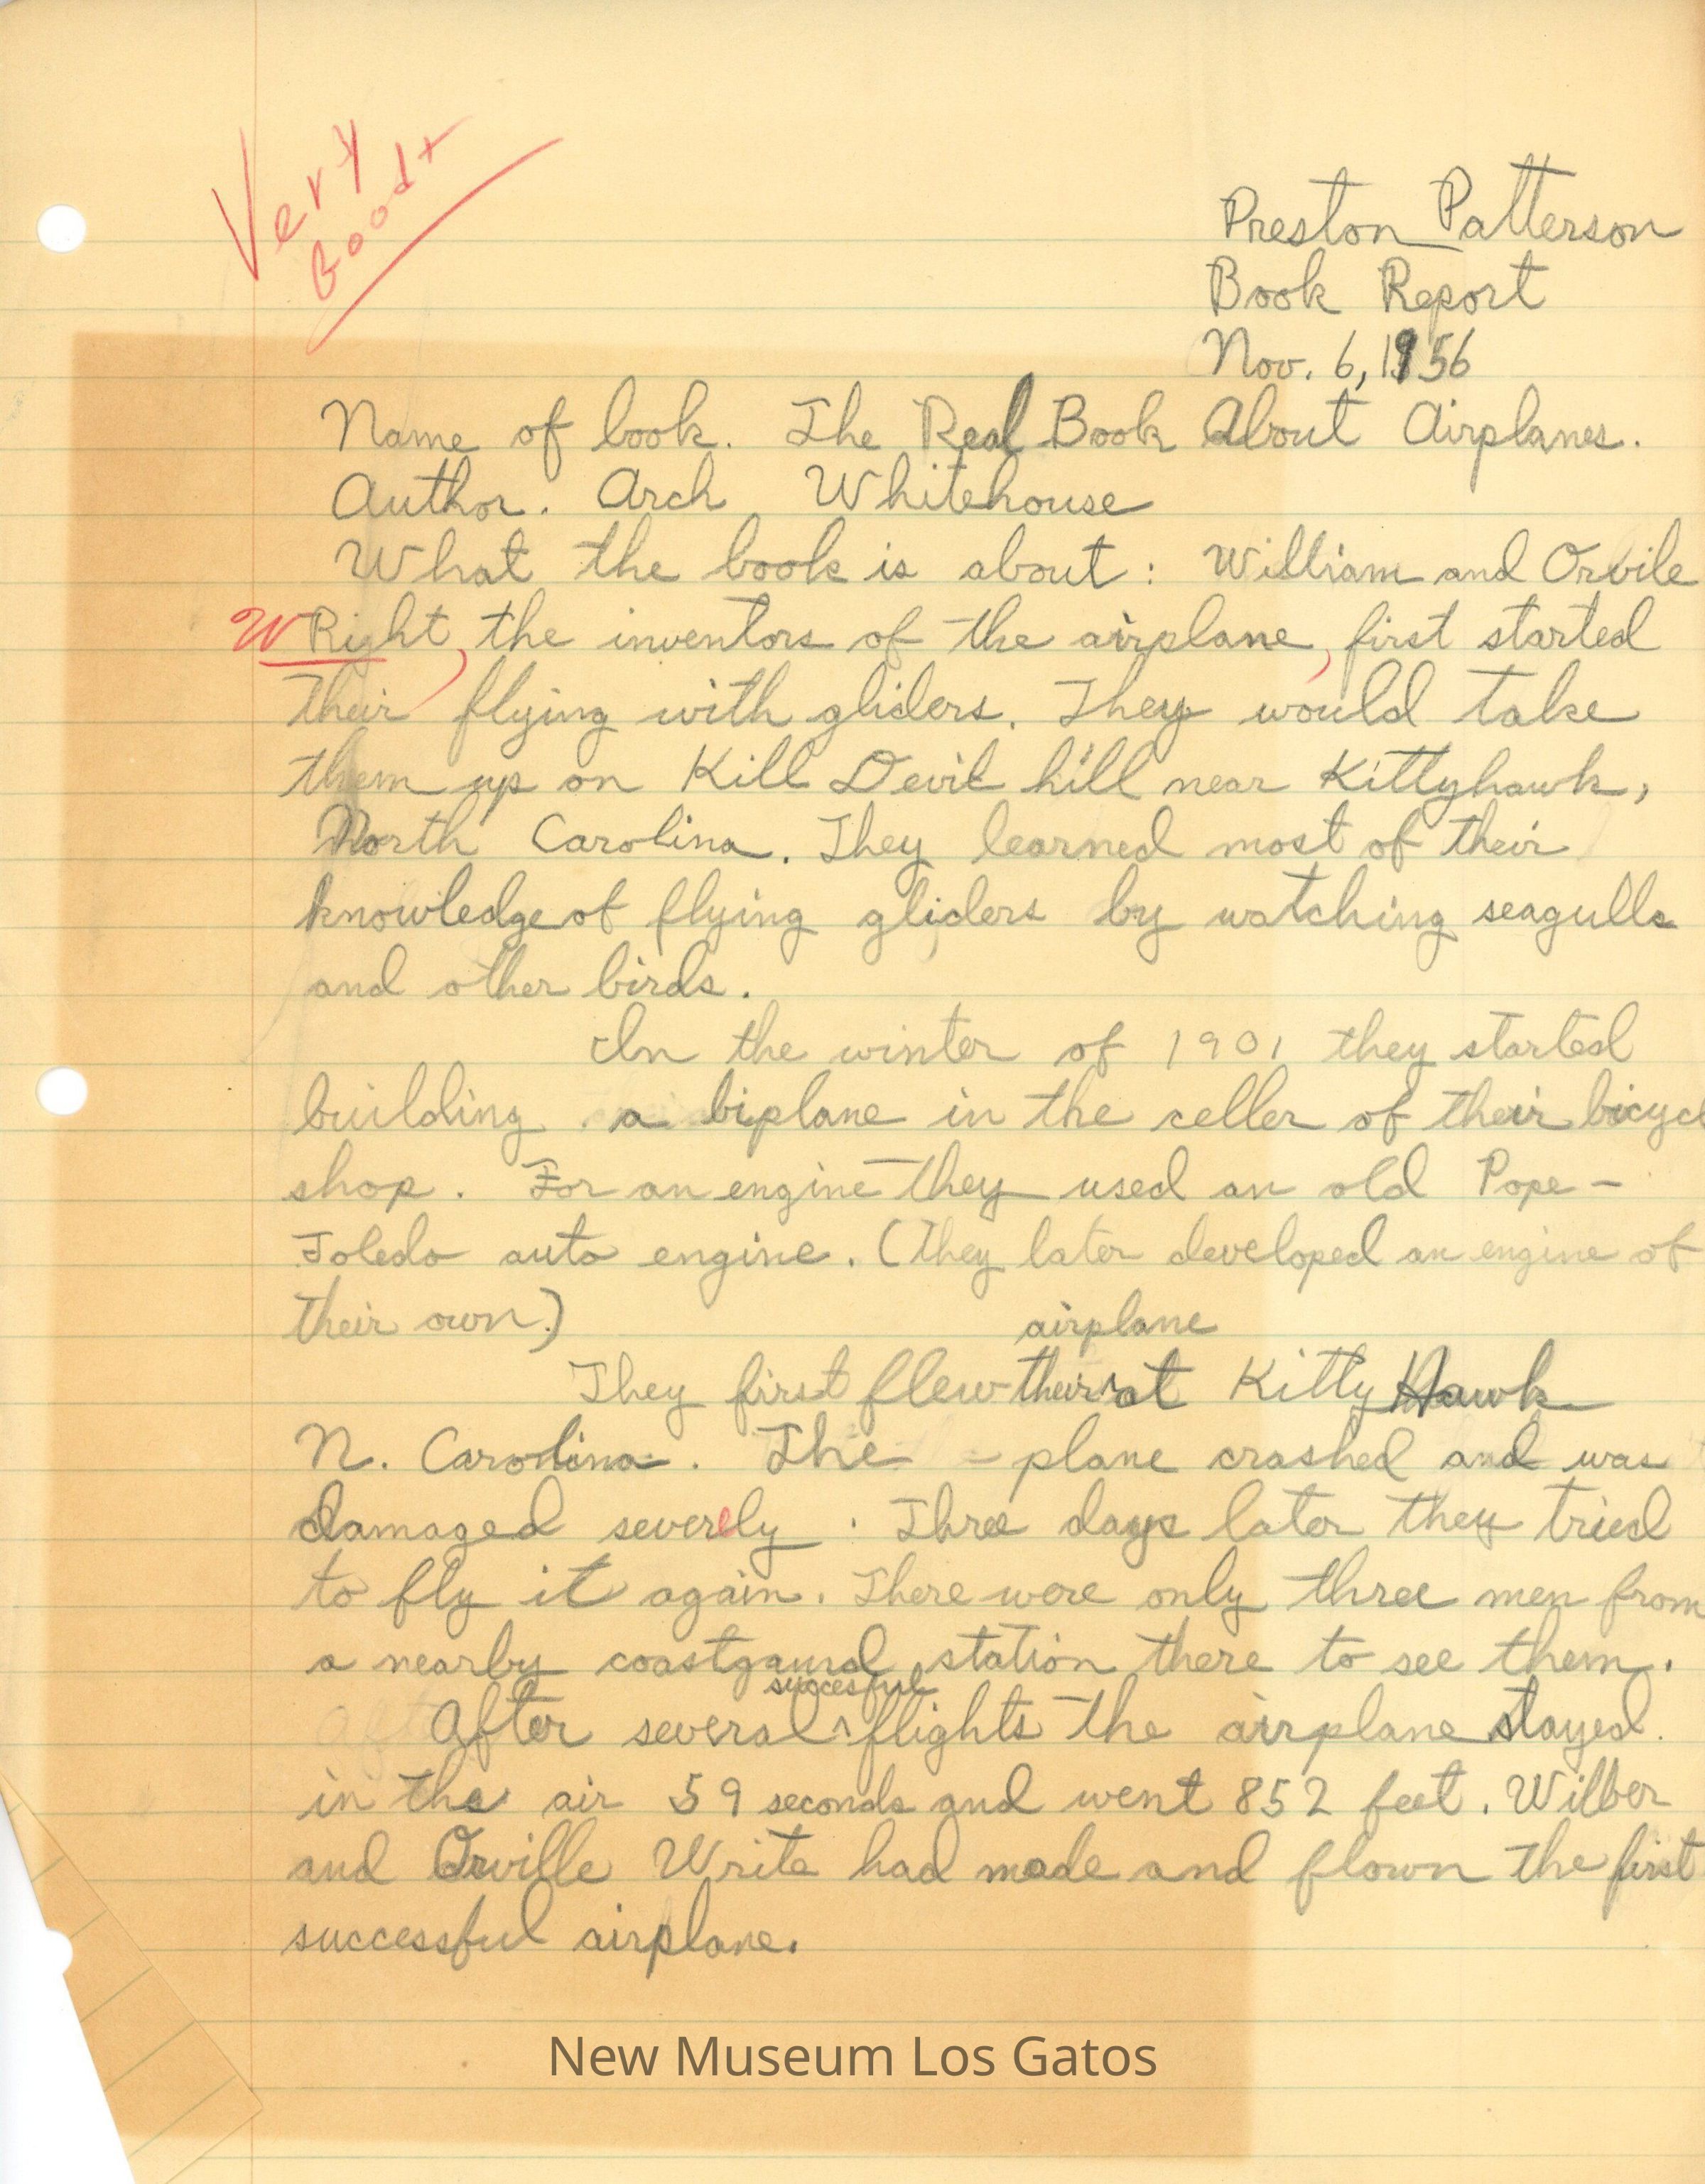 Very
Good+
Preston Patterson
Book Report
Nov. 6, 1956
Name of book. The Real Book About Airplanes.
Author. Arch Whitehouse
What the book is about: William and Orvile
W Right, the inventors of the airplane, first started
their flying with gliders. They would take
them up on Kill Devil hill near Kittyhawk,
North Carolina. They learned most of their
knowledge of flying gliders by watching seagulls
and other birds.
In the winter of 1901 they started
building a biplane in the celler of their bicycl
shop. For an engine they used an old Pope-
Toledo auto engine. (They later developed an engine of
their own.)
airplane
They first flew their ^ at Kitty Hawk
N. Carolina. The - plane crashed and was
damaged severely. Three days later they tried
to fly it again. There were only three men from
a nearby coastgaurd station there to see them.
succesful
After several ^ flights the airplane stayed
in the air 59 seconds and went 852 feet. Wilber
and Orville Write had made and flown the first
successful airplane.
New Museum Los Gatos